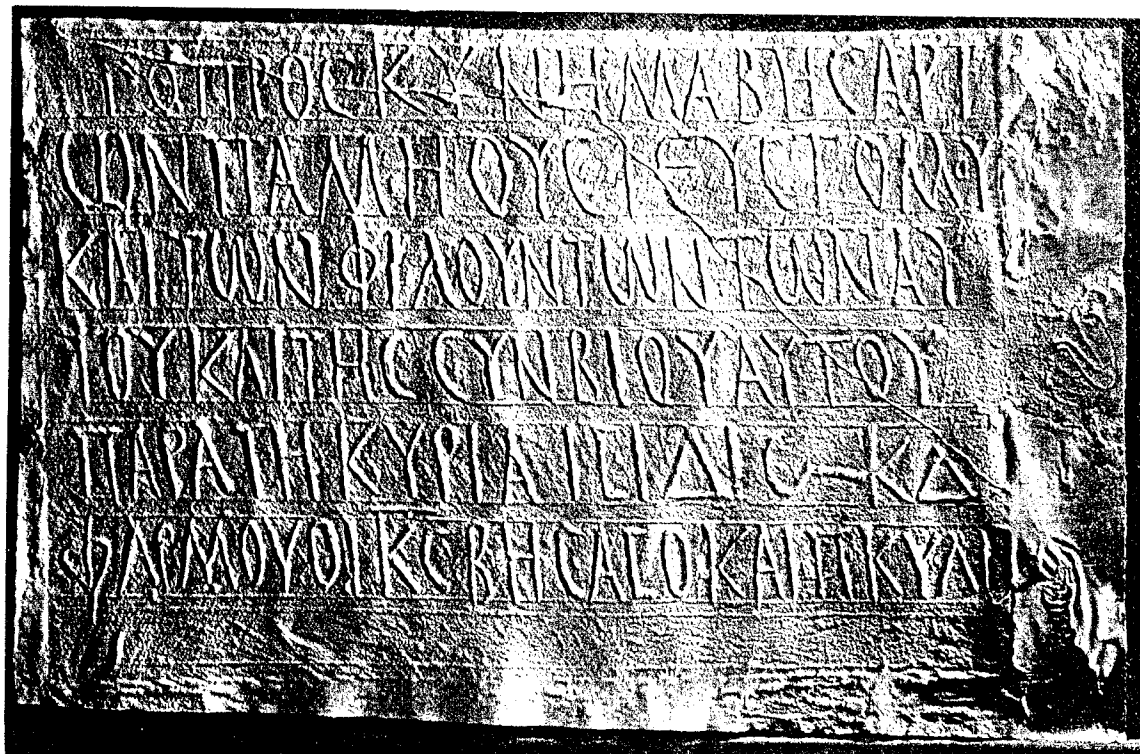 ΤΟΠΡΟCΚΥΝΗΜΑΒΗCΑΡΙ
ΩΝΠΑΜΗΟΥCΙΕΥCΤΟΚΛΥ
ΚΑΙΤΩΝΦΙΛΟΥΝΤΩΝΤΩΝΑΥ
ΤΟΥΚΑΙΤΗCCΥΝΒΙΟΥΑΥΤΟΥ
ΠΑΡΑΤΗΚΥΡΙΑΙCΙΔΙ C ΚΔ
ΦΑΡΜΟΥΘΙΚCΒΗCΑCΟΚΑΙΠΚΥΛΙ